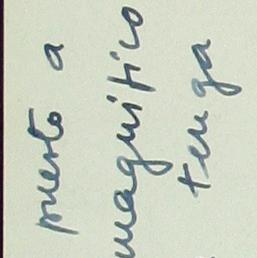 puesto a
magnifico
tenga